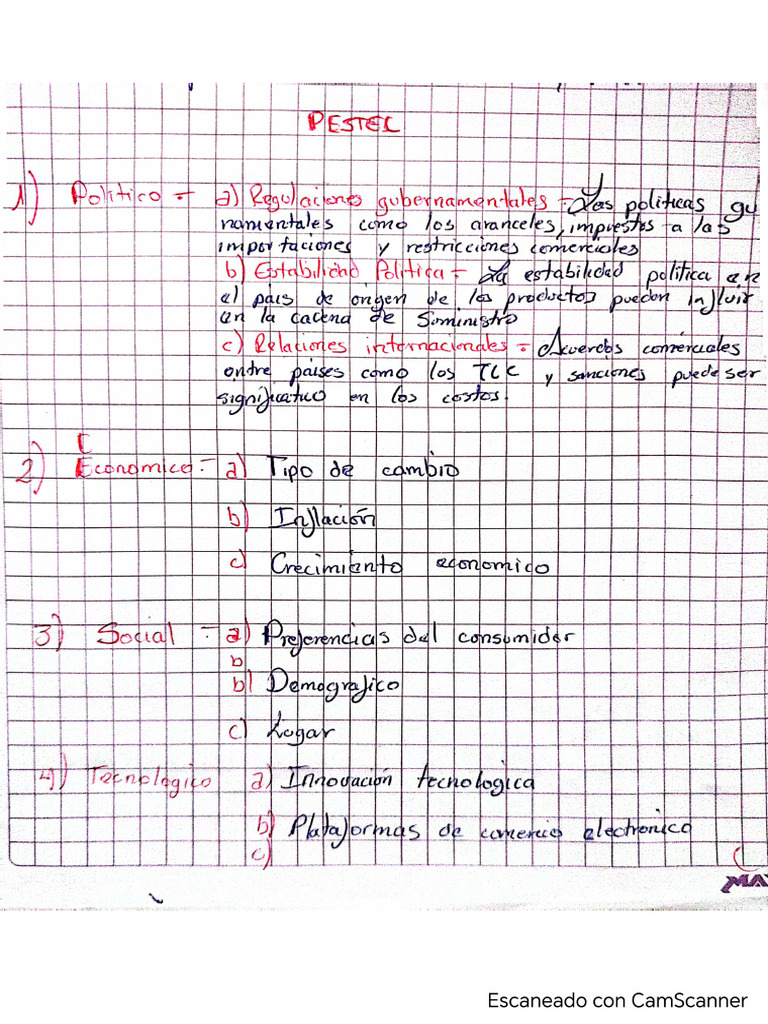 PESTEL
1) Politico = a) Regulaciones gubernamentales = Las politicas gu
namentales como los aranceles, impuestos a las
importaciones y restricciones comerciales
b) Estabilidad Politica = La estabilidad politica en
el pais de origen de los productos pueden influir
en la cadena de Suministro
c) Relaciones internacionales = Acuerdos comerciales
entre países como los TLC y sanciones puede ser
significativo en los costos.
E
2) Economico = a) Tipo de cambio
b) Inflación
c) Crecimiento economico
3) Social = a) Preferencias del consumidor
b
b) Demografico
c) Lugar
4) Tecnologico a) Innovación tecnologica
b) Plataformas de comercio electronico
c)
MA
Escaneado con CamScanner